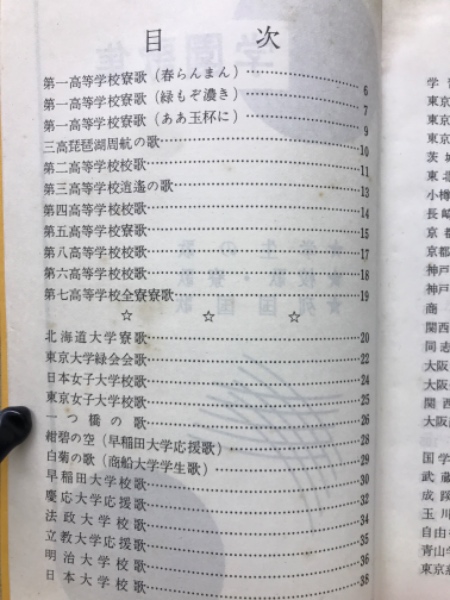 目次
第一高等学校寮歌(春らんまん)……6
第一高等学校寮歌(緑もぞ濃き)……7
第一高等学校寮歌(ああ玉杯に)……9
三高琵琶湖周航の歌……10
第二高等学校校歌……11
第三高等学校逍遙の歌……13
第四高等学校校歌……14
第五高等学校寮歌……15
第八高等学校校歌……17
第六高等学校校歌……18
第七高等学校全寮寮歌……19
☆ ☆ ☆
北海道大学寮歌……20
東京大学緑会会歌……22
日本女子大学校歌……24
東京女子大学校歌……25
一つ橋の歌……26
紺碧の空(早稲田大学応援歌)……28
白菊の歌(商船大学学生歌)……29
早稲田大学校歌……30
慶応大学応援歌……32
法政大学校歌……34
立教大学応援歌……35
明治大学校歌……36
日本大学校歌……38
学
東京
東京
東京
茨城
東北
小樽
長崎
京都
京都
神戸
神戸
商
関西
同志
大阪
大阪
関西
大阪
国学
武蔵
成蹊
玉川
自由
青山
東京